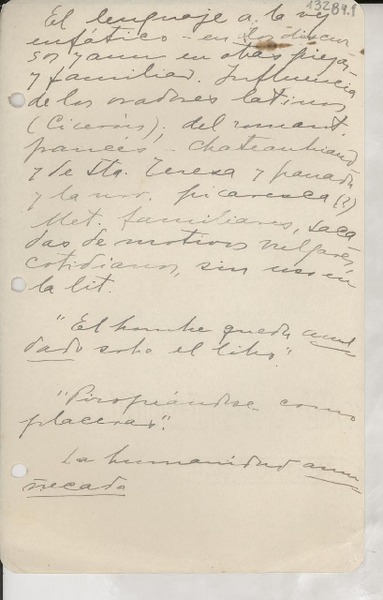 13289.1
El lenguaje a la vez
enfático - en los discur
sos y aun en otras piezas
y familiar. Influencia
de los oradores latinos
(Cicerón), del romant.
francés - Chateaubriand
y de Sta. Teresa y
y la nov. picaresca (?)
Met. familiares, saca
das de motivos vulgares,
cotidianos, sin uso en
la lit.
"El hombre queda anu
dado sobre el libro".
"Piropeándose como
placeras".
La humanidad amu
ñecada